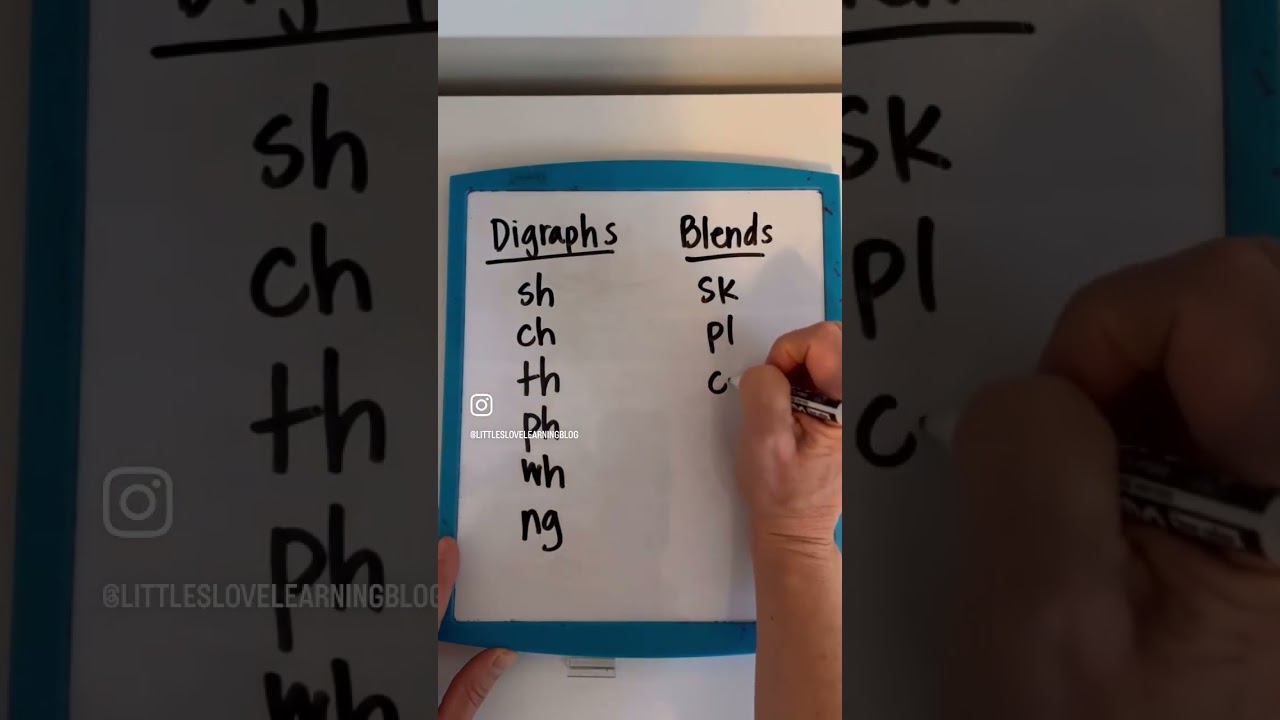 Digraphs Blends
sh sk
ch pl
th c
@LITTLESLOVELEARNINGBLOG
ph
wh
ng